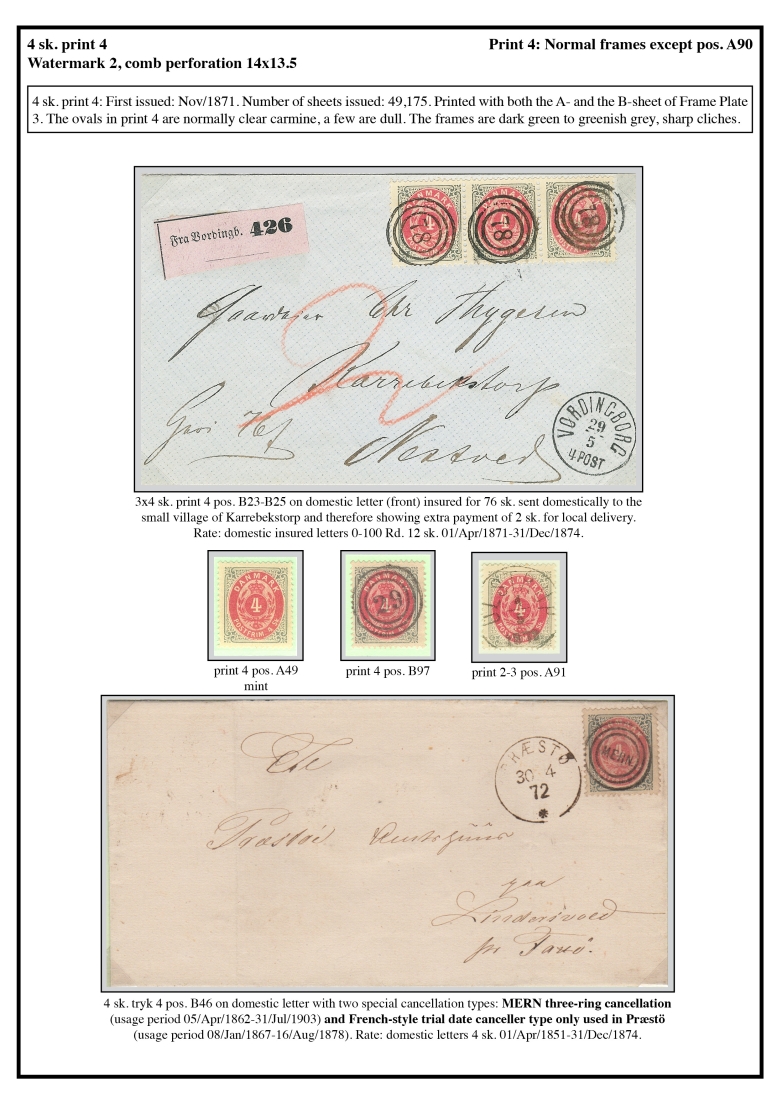 4 sk. print 4
Print 4: Normal frames except pos. A90
Watermark 2, comb perforation 14x13.5
4 sk. print 4: First issued: Nov/1871. Number of sheets issued: 49,175. Printed with both the A- and the B-sheet of Frame Plate
3. The ovals in print 4 are normally clear carmine, a few are dull. The frames are dark green to greenish grey, sharp cliches.
Fra Vordingb. 426
Gaardejer Chr Thygesen
2
Karrebekstorp
Nestved
VORDINGBORG
29
5
4 POST
3x4 sk. print 4 pos. B23-B25 on domestic letter (front) insured for 76 sk. sent domestically to the
small village of Karrebekstorp and therefore showing extra payment of 2 sk. for local delivery.
Rate: domestic insured letters 0-100 Rd. 12 sk. 01/Apr/1871-31/Dec/1874.
DANMARK
4
POSTFRIM. 4 SK.
29
DANMARK
4
print 4 pos. A49
mint
print 4 pos. B97
print 2-3 pos. A91
PRÆSTØ
30 4
72
MERN
Præstøi
paa
pr Faxø.
4 sk. tryk 4 pos. B46 on domestic letter with two special cancellation types: MERN three-ring cancellation
(usage period 05/Apr/1862-31/Jul/1903) and French-style trial date canceller type only used in Præstö
(usage period 08/Jan/1867-16/Aug/1878). Rate: domestic letters 4 sk. 01/Apr/1851-31/Dec/1874.